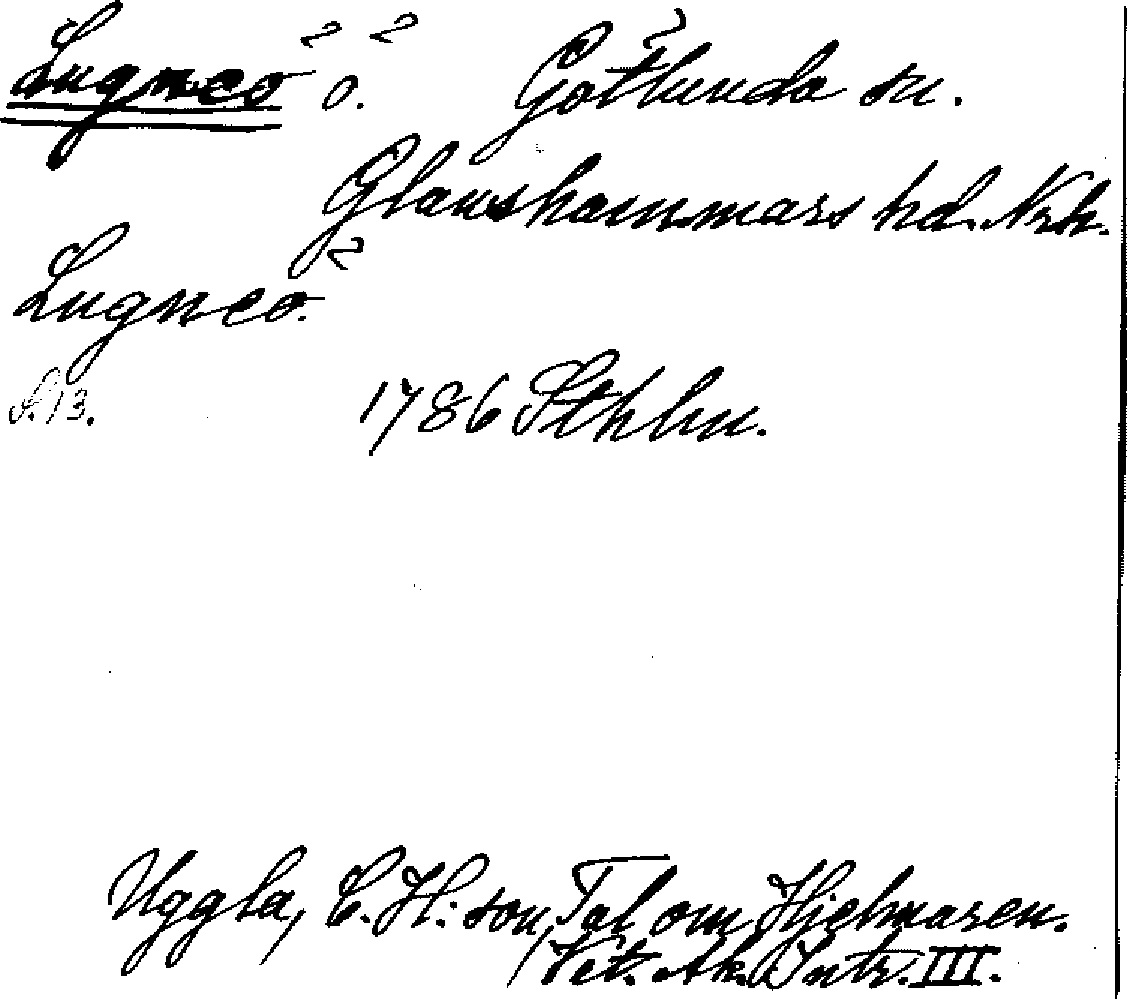 Lugneö ö. Götlunda sn.
Glanshammars hd. Nrk.
Lugneö.
S. 13. 1786 Sthlm.
Uggla, C. H:son, Tal om Hjelmaren.
Vet. Ak. Intr. III.